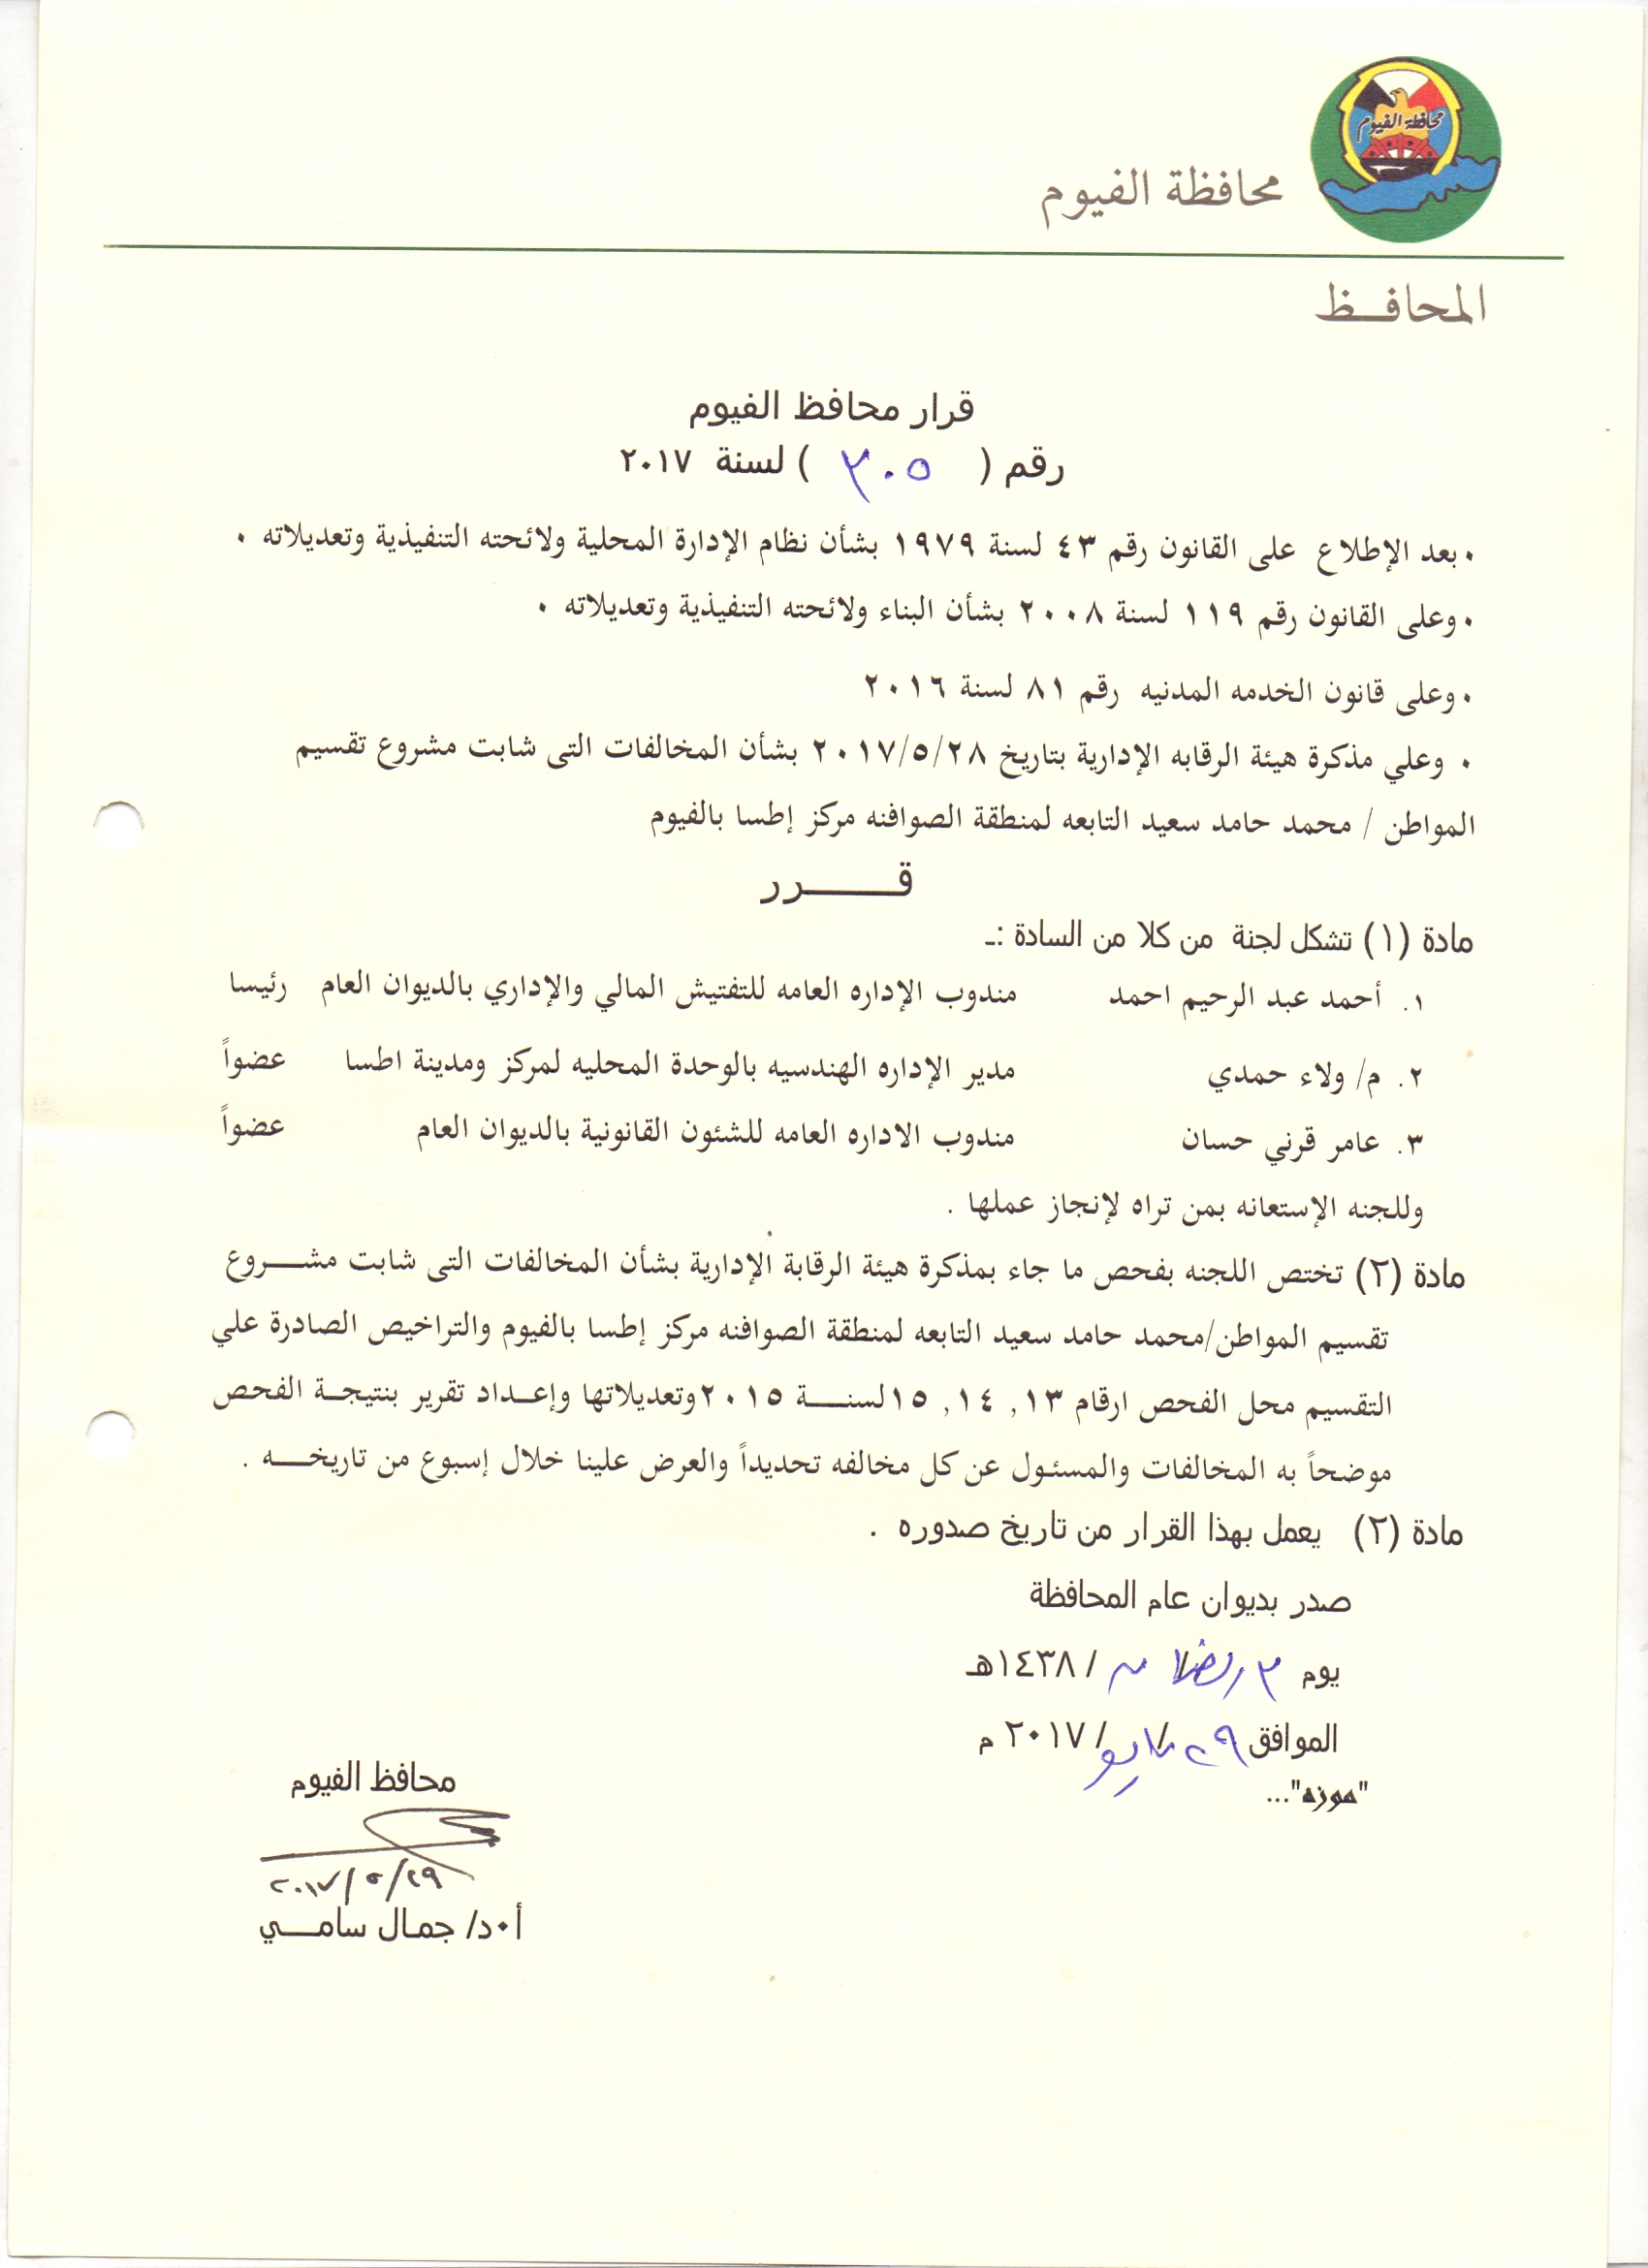 محافظة الفيوم
محافظة الفيوم
المحافـظ
قرار محافظ الفيوم
رقم ( ٣٠٥ ) لسنة ٢٠١٧
٠ بعد الإطلاع على القانون رقم ٤٣ لسنة ١٩٧٩ بشأن نظام الإدارة المحلية ولائحته التنفيذية وتعديلاته ٠
٠ وعلى القانون رقم ١١٩ لسنة ٢٠٠٨ بشأن البناء ولائحته التنفيذية وتعديلاته ٠
٠ وعلى قانون الخدمه المدنيه رقم ٨١ لسنة ٢٠١٦
٠ وعلي مذكرة هيئة الرقابه الإدارية بتاريخ ٢٠١٧/٥/٢٨ بشأن المخالفات التى شابت مشروع تقسيم
المواطن / محمد حامد سعيد التابعه لمنطقة الصوافنه مركز إطسا بالفيوم
قـــــرر
مادة (١) تشكل لجنة من كلا من السادة :ـ
١. أحمد عبد الرحيم احمد مندوب الإداره العامه للتفتيش المالي والإداري بالديوان العام رئيسا
٢. م/ ولاء حمدي مدير الإداره الهندسيه بالوحدة المحليه لمركز ومدينة اطسا عضواً
٣. عامر قرني حسان مندوب الاداره العامه للشئون القانونية بالديوان العام عضواً
وللجنه الإستعانه بمن تراه لإنجاز عملها .
مادة (٢) تختص اللجنه بفحص ما جاء بمذكرة هيئة الرقابة الإدارية بشأن المخالفات التى شابت مشـــروع
تقسيم المواطن/محمد حامد سعيد التابعه لمنطقة الصوافنه مركز إطسا بالفيوم والتراخيص الصادرة علي
التقسيم محل الفحص ارقام ١٣, ١٤, ١٥ لسنـــة ٢٠١٥ وتعديلاتها وإعـداد تقرير بنتيجـة الفحص
موضحاً به المخالفات والمسئول عن كل مخالفه تحديداً والعرض علينا خلال إسبوع من تاريخـــه .
مادة (٢) يعمل بهذا القرار من تاريخ صدوره .
صدر بديوان عام المحافظة
يوم ٣ رمضان / ١٤٣٨هـ
الموافق ٢٩ / مايو / ٢٠١٧ م
"موزه"...
محافظ الفيوم
٢٠١٧/٥/٢٩
أ٠د/ جمـال سامـــي